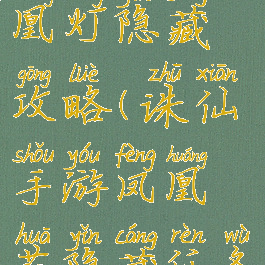 凰灯隐藏
gōng lüè zhū xiān
攻略(诛仙
shǒu yóu fèng huáng
手游凤凰
huā yǐn cáng rèn wù